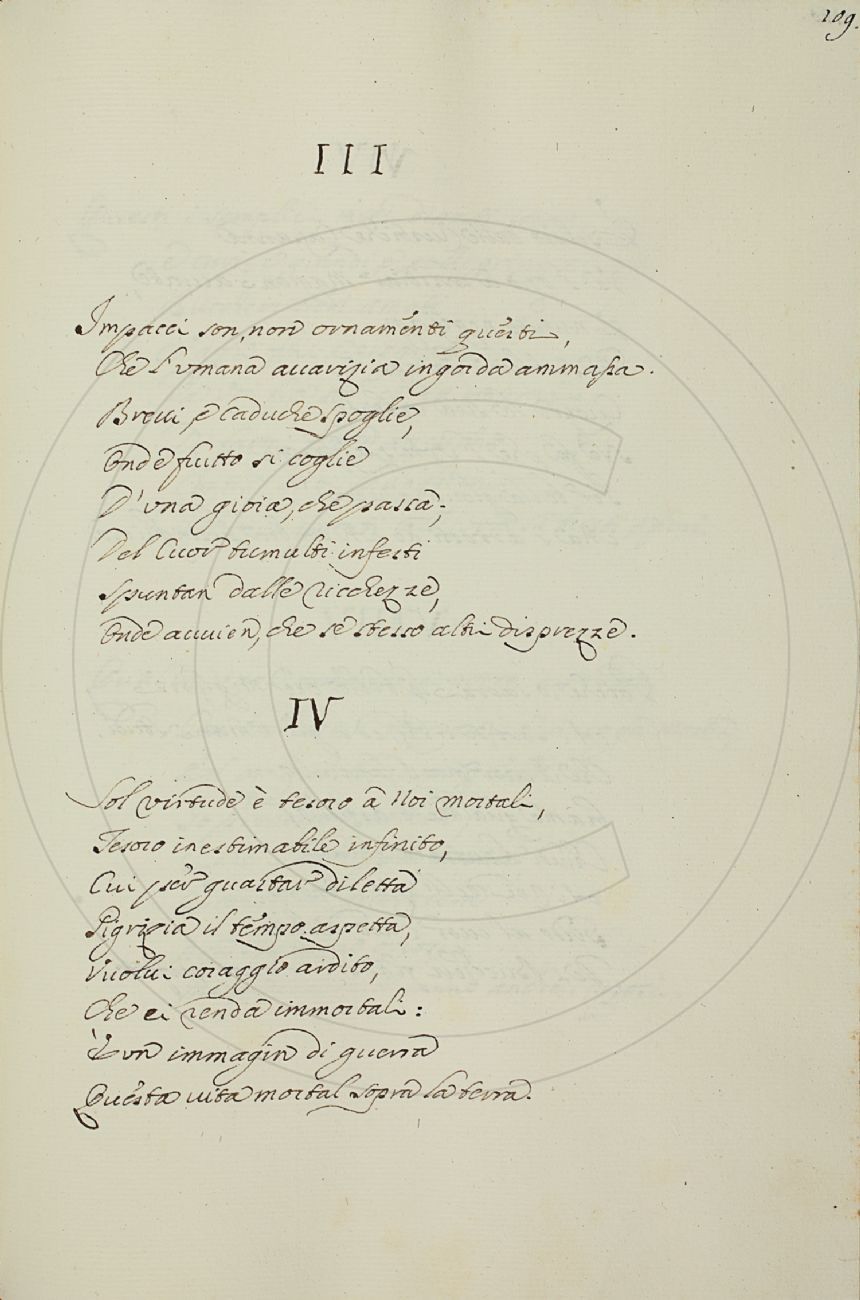 109.
III
Impacci son, non ornamenti questi,
Che l'vmana auarizia ingorda ammassa.
Breui e caduche spoglie,
Onde frutto si coglie
D'vna gioia, che passa;
Del Cuor tumulti infesti
Spuntan dalle ricchezze,
Onde auuien, che sè stesso altri disprezze.
IV
Sol virtude è tesoro a Noi mortali,
Tesoro inestimabile infinito,
Cui per guastar diletta
Pigrizia il tempo aspetta,
Vuolui coraggio ardito,
Che ci renda immortali:
È vn immagin di guerra
Questa uita mortal sopra la terra.